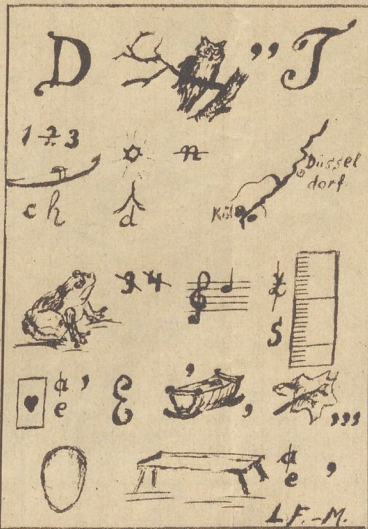 D ,, T
1 2 3 n
ch d
Düssel
dorf
Köln
3 4 x
5
a ' e ' , ,,,
e
a ,
e
L.F.-M.